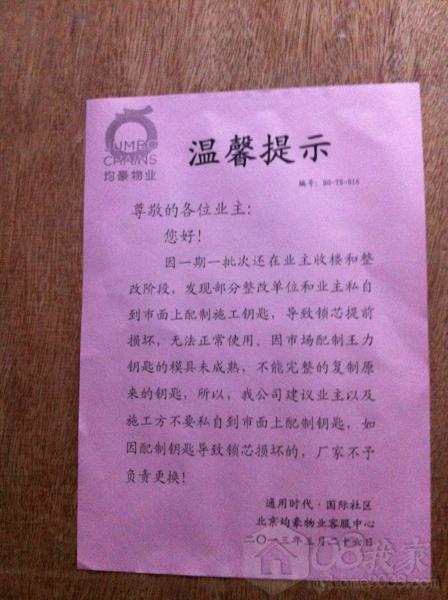 JUMBO
CHAINS
均豪物业
温馨提示
编号：BG-TS-016
尊敬的各位业主：
您好！
因一期一批次还在业主收楼和整
改阶段，发现部分整改单位和业主私自
到市面上配制施工钥匙，导致锁芯提前
损坏，无法正常使用。因市场配制王力
钥匙的模具未成熟，不能完整的复制原
来的钥匙，所以，我公司建议业主以及
施工方不要私自到市面上配制钥匙，如
因配制钥匙导致锁芯损坏的，厂家不予
负责更换！
通用时代·国际社区
北京均豪物业客服中心
二〇一三年三月二十六日
我家